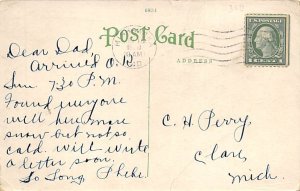 Post Card
ADDRESS
Dear Dad,
Arrived O.K.
Sun 730 P.M.
Found everyone
well here more
snow but not so
cold. will write
a letter soon.
So Long Phebe.
C. H. Perry,
Clare,
Mich.